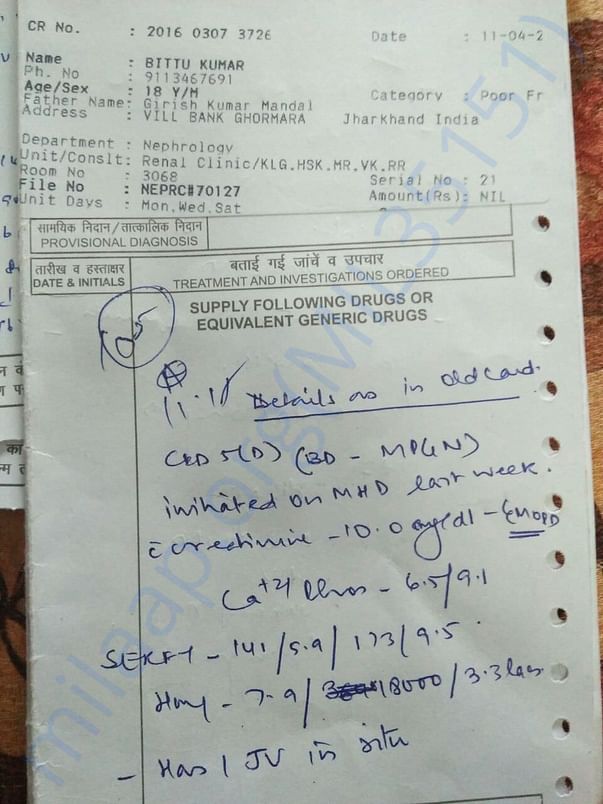 CR No. : 2016 0307 3726 Date : 11-04-2
Name : BITTU KUMAR
Ph. No : 9113467691
Age/Sex : 18 Y/M Category : Poor Fr
Father Name: Girish Kumar Mandal
Address : VILL BANK GHORMARA Jharkhand India
Department : Nephrology
Unit/Conslt: Renal Clinic/KLG.HSK.MR.VK.RR
Room No : 3068 Serial No : 21
File No : NEPRC#70127 Amount(Rs): NIL
Unit Days : Mon,Wed,Sat
सामयिक निदान/तात्कालिक निदान
PROVISIONAL DIAGNOSIS
तारीख व हस्ताक्षर
DATE & INITIALS
बताई गई जांचें व उपचार
TREATMENT AND INVESTIGATIONS ORDERED
SUPPLY FOLLOWING DRUGS OR
EQUIVALENT GENERIC DRUGS
Details as in old card.
CKD 5(D) (BD - MPGN)
initiated on MHD last week.
creatinine - 10.0 mg/dl - EMOPD
Ca+2/Phos - 6.5/9.1
SEKFT - 141/5.9/173/9.5.
7.9/18000/3.3 lac
- Has IJV in situ
milaap.org